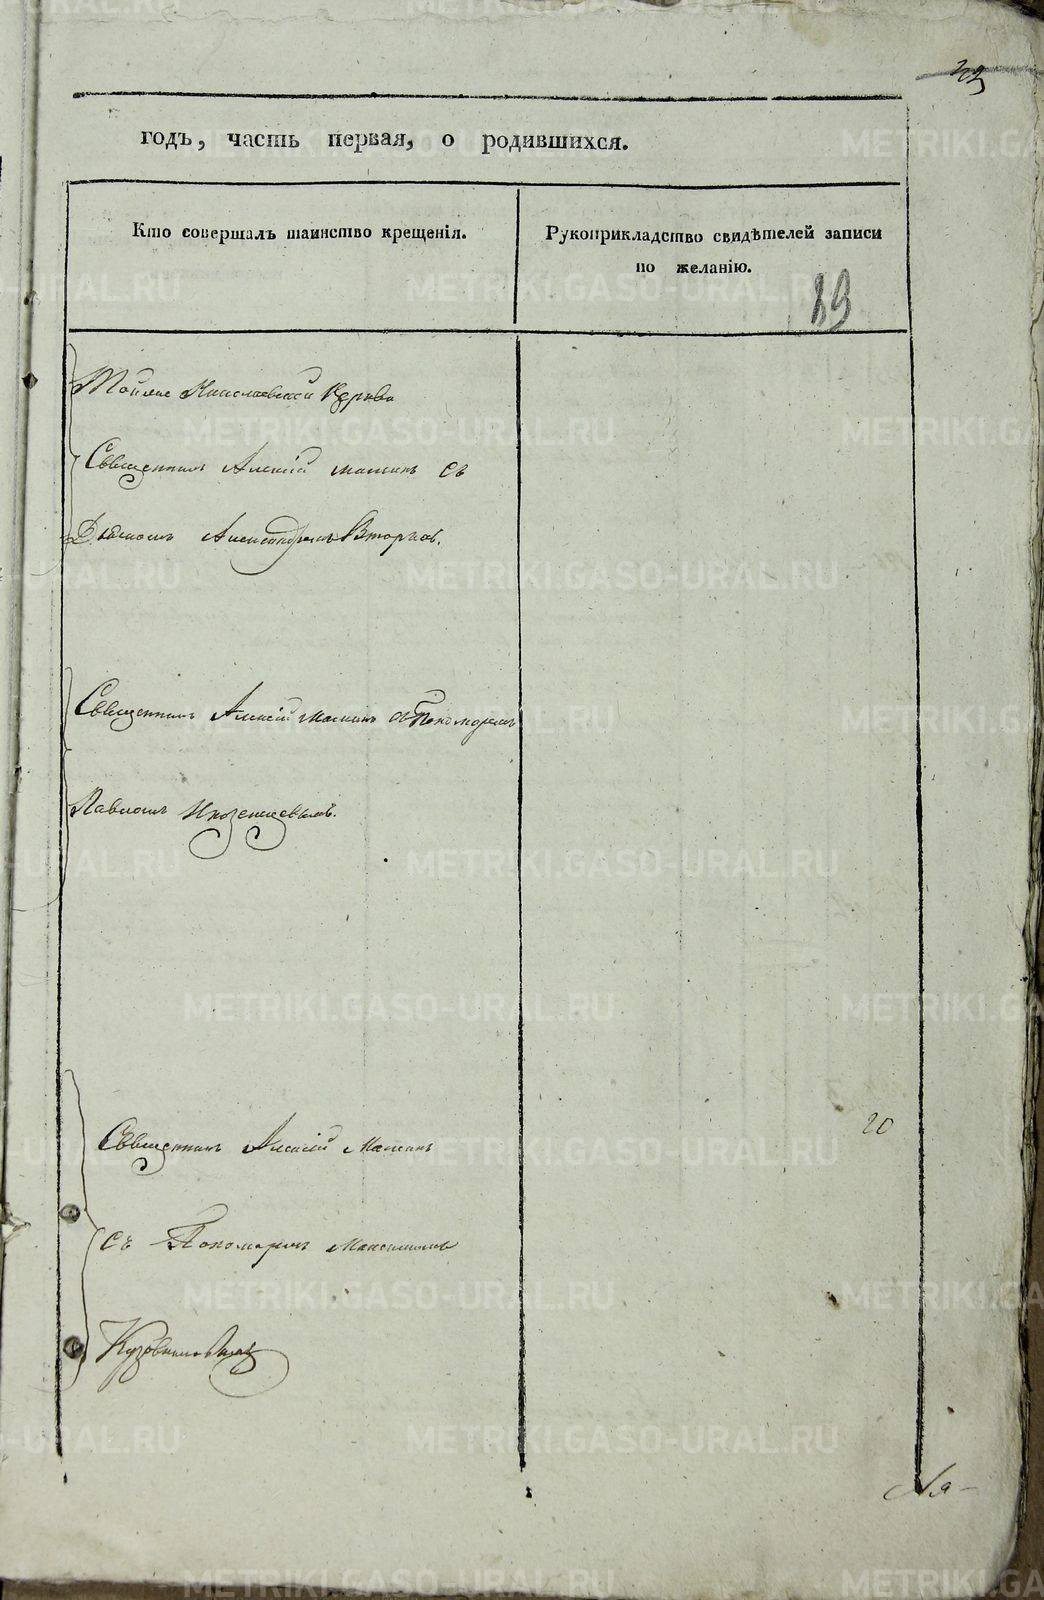 годъ, часть первая, о родившихся.
Кто совершалъ таинство крещенія.
Рукоприкладство свидѣтелей записи
по желанію.
29
Тойже Николаевской Церкви
Священникъ Алексій Мамин съ
Діакономъ Александромъ
Священникъ Алексій Маминъ съ Пономаремъ
Павломъ
Священникъ Алексій Маминъ
20
съ Пономаремъ Максимомъ
METRIKI.GASO-URAL.RU